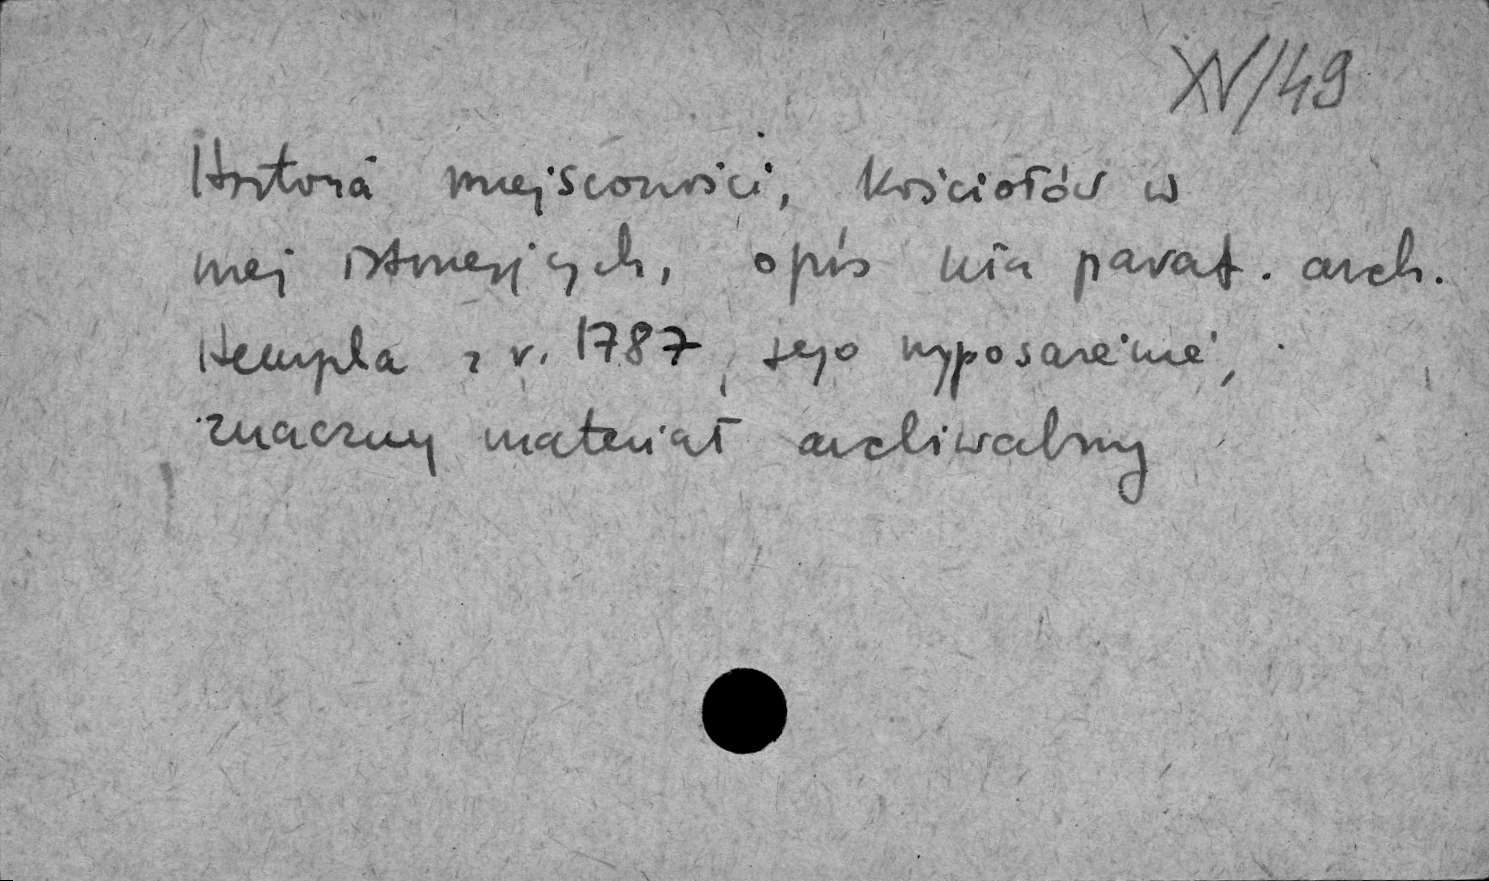 XV/49
Historia miejscowości, kościołów w
niej istniejących, opis k-ła paraf. arch.
Hempla z r. 1787, jego wyposażenie,
znaczny materiał archiwalny